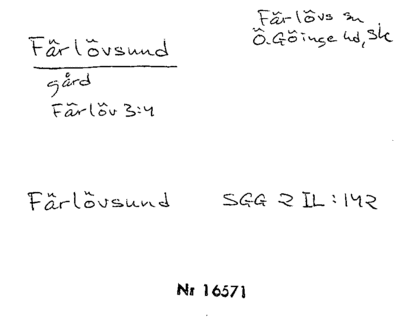 Färlövsund
gård
Färlöv 3:4
Färlövs sn
Ö. Göinge hd, Sk
Färlövsund SGG 2 IL: 142
Nr 16571